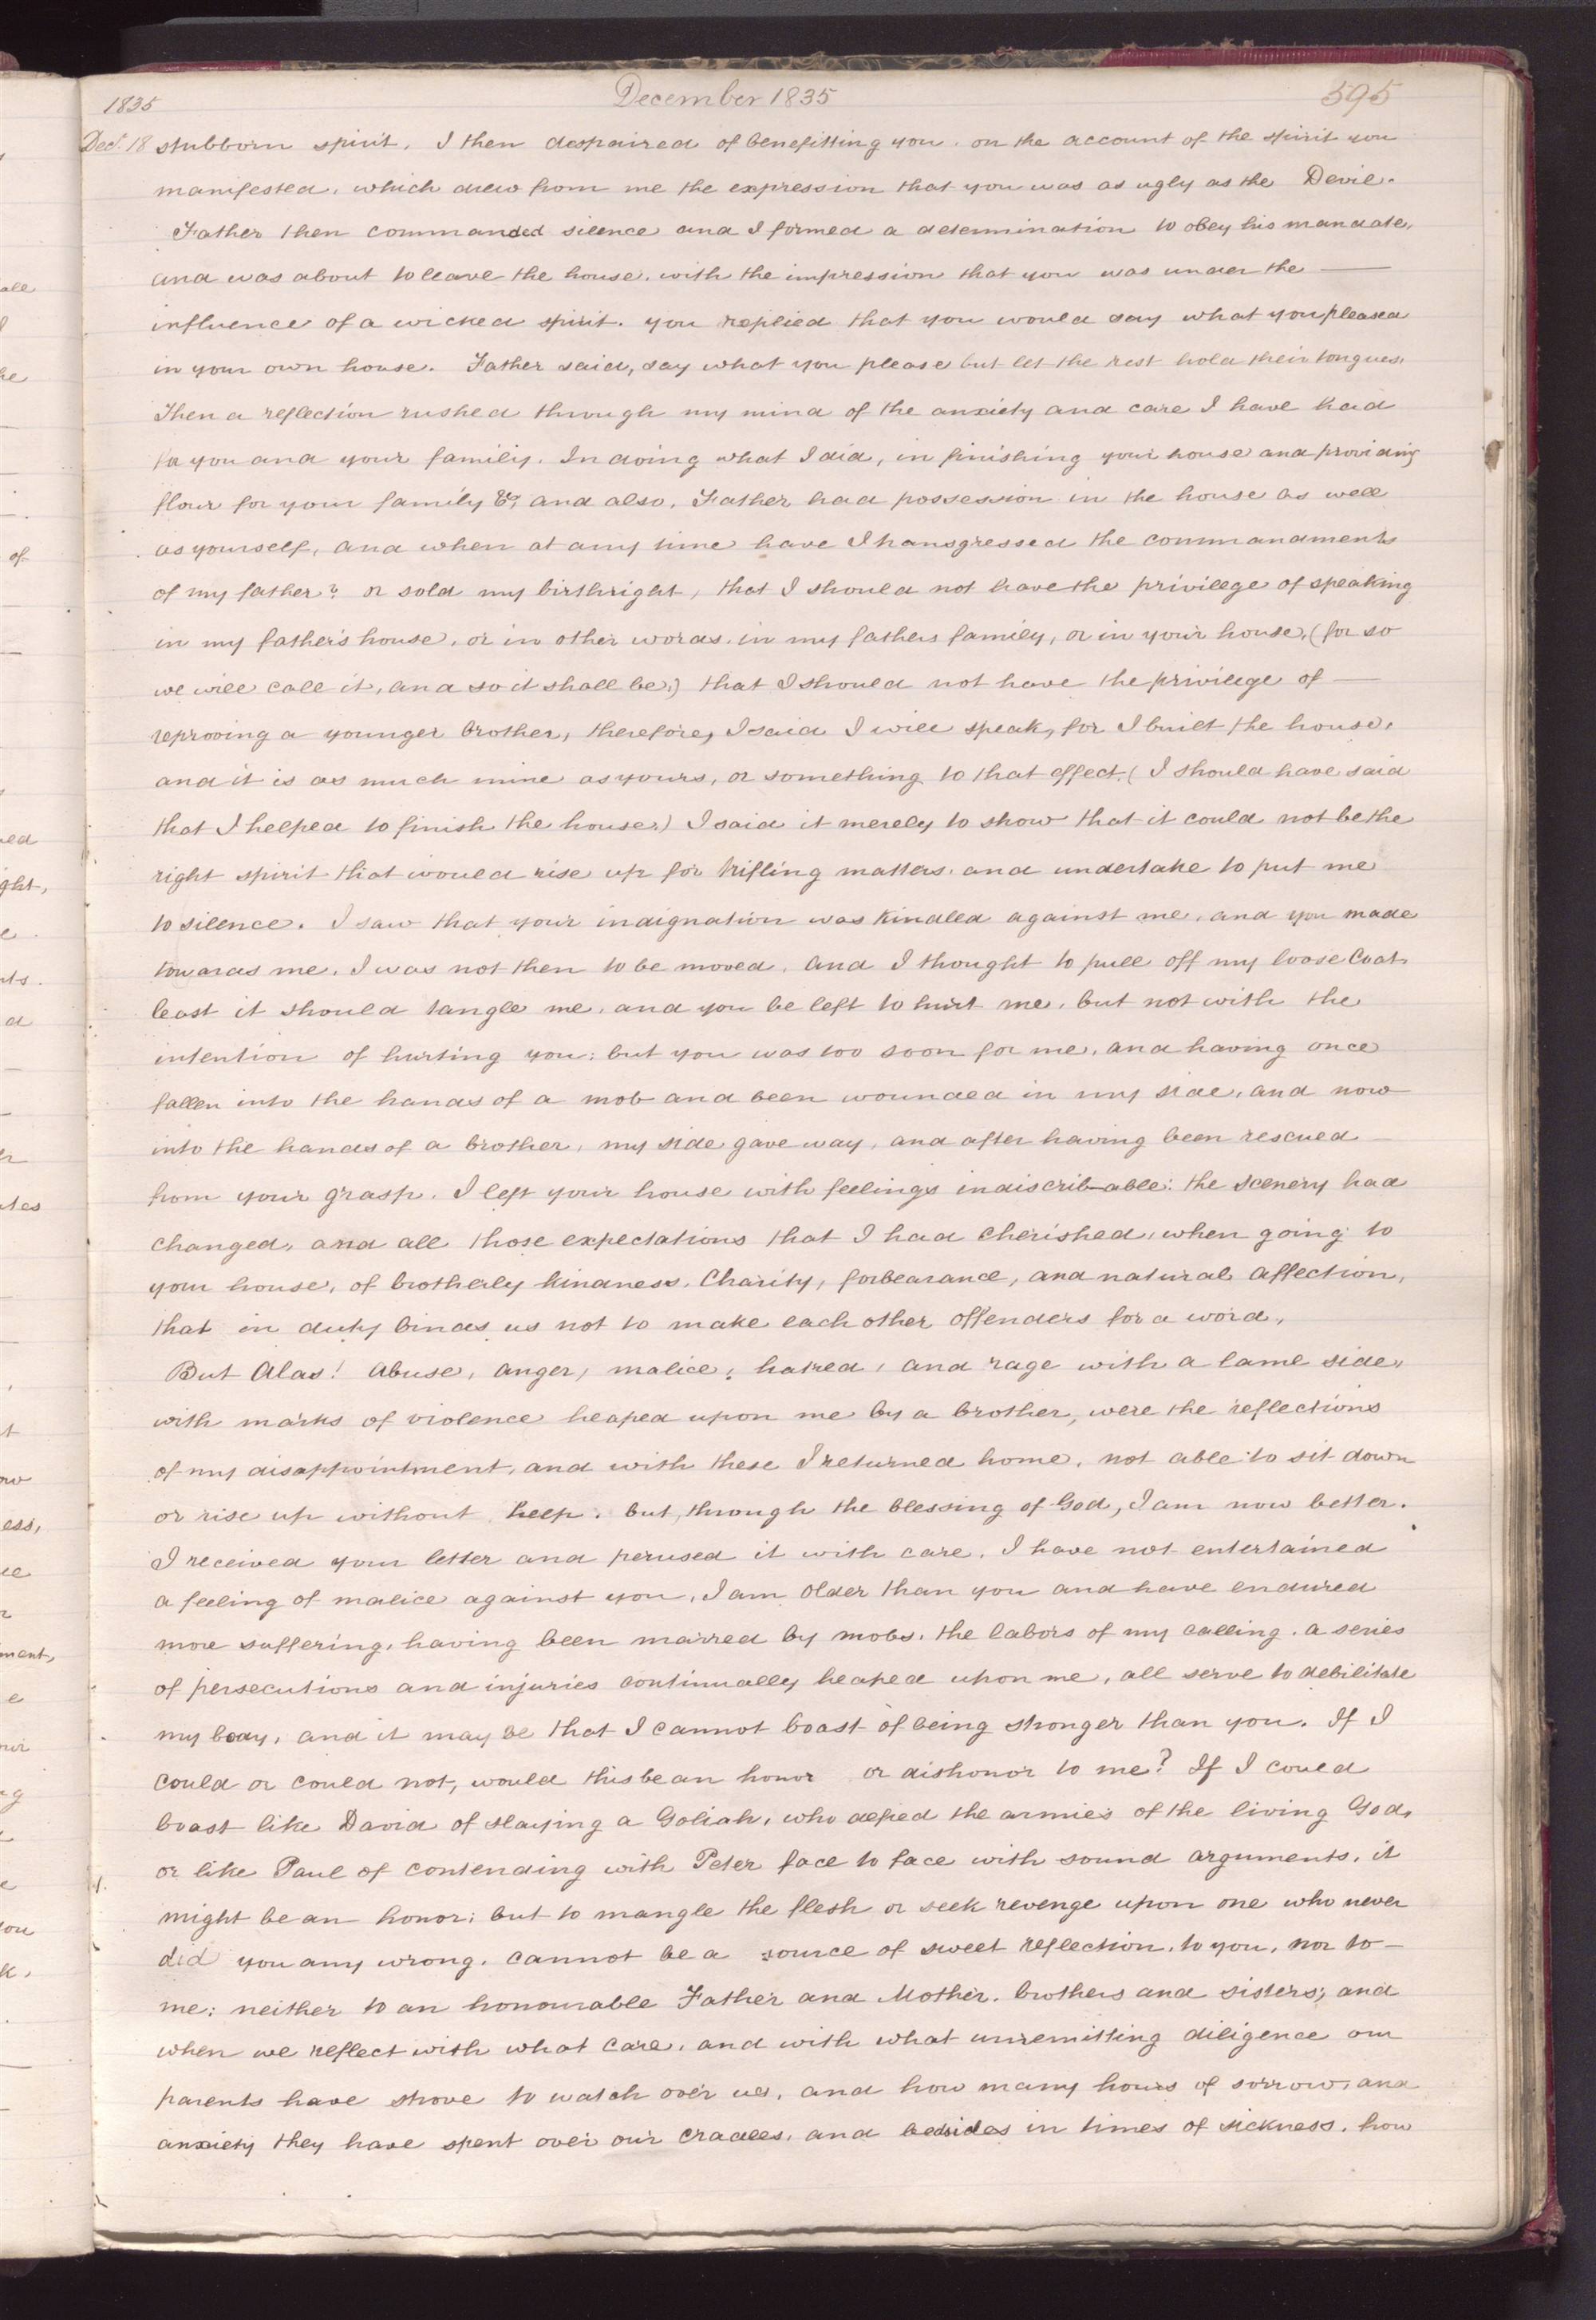 1835 December 1835 595
Dec. 18 stubborn spirit. I then despaired of benefitting you. on the account of the spirit you
manifested, which drew from me the expression that you was as ugly as the Devil.
Father then commanded silence and I formed a determination to obey his mandate,
and was about to leave the house, with the impression that you was under the —
influence of a wicked spirit. you replied that you would say what you pleased
in your own house. Father said, say what you please but let the rest hold their tongues.
Then a reflection rushed through my mind of the anxiety and care I have had
for you and your family. In doing what I did, in finishing your house and providing
flour for your family &c, and also, Father had possession in the house as well
as yourself, and when at any time have I transgressed the commandments
of my father? or sold my birthright, that I should not have the privilege of speaking
in my father's house, or in other words. in my fathers family, or in your house, (for so
we will call it, and so it shall be,) that I should not have the privilege of —
reproving a younger brother, therefore, I said I will speak, for I built the house,
and it is as much mine as yours, or something to that effect. (I should have said
that I helped to finish the house.) I said it merely to show that it could not be the
right spirit that would rise up for trifling matters. and undertake to put me
to silence. I saw that your indignation was kindled against me, and you made
towards me. I was not then to be moved. and I thought to pull off my loose Coat
least it should tangle me, and you be left to hurt me, but not with the
intention of hurting you: but you was too soon for me, and having once
fallen into the hands of a mob and been wounded in my side, and now
into the hands of a brother, my side gave way, and after having been rescued
from your grasp. I left your house with feelings indiscrib-able: the scenery had
changed, and all those expectations that I had cherished, when going to
your house, of brotherly kindness, Charity, forbearance, and natural affection,
that in duty binds us not to make each other offenders for a word,
But Alas! Abuse, anger, malice, hatred, and rage with a lame side,
with marks of violence heaped upon me by a brother, were the reflections
of my disappointment, and with these I returned home, not able to sit down
or rise up without help. but, through the blessing of God, I am now better.
I received your letter and perused it with care. I have not entertained
a feeling of malice against you, I am older than you and have endured
more suffering, having been marred by mobs, the labors of my calling. a series
of persecutions and injuries continually heaped upon me, all serve to debilitate
my body, and it may be that I cannot boast of being stronger than you. If I
could or could not, would this be an honor or dishonor to me? If I could
boast like David of slaying a Goliah, who defied the armies of the living God,
or like Paul of contending with Peter face to face with sound arguments, it
might be an honor; but to mangle the flesh or seek revenge upon one who never
did you any wrong. cannot be a source of sweet reflection, to you, nor to —
me: neither to an honourable Father and Mother. brothers and sisters; and
when we reflect with what care, and with what unremitting diligence our
parents have strove to watch over us, and how many hours of sorrow, and
anxiety they have spent over our cradles, and bedsides in times of sickness, how